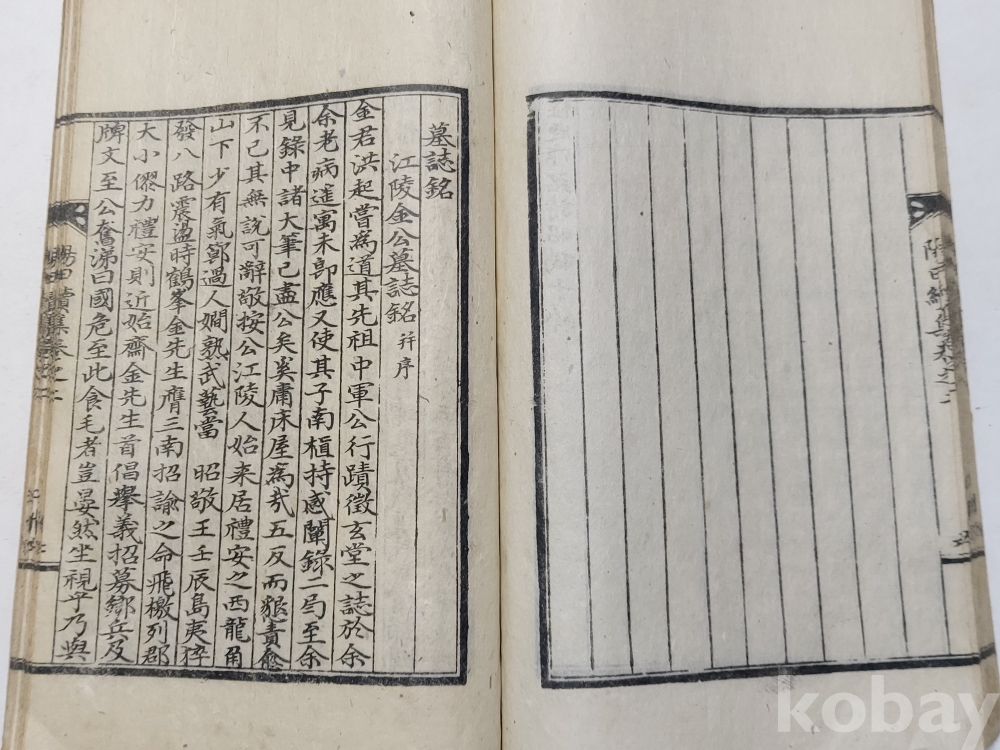 墓誌銘
江陵金公墓誌銘 幷序
金君洪起嘗爲道其先祖中軍公行蹟徵玄堂之誌於余
余老病進寓未卽應又使其子南植持感闡錄二局至余
見錄中諸大筆已盡公矣奚庸床屋爲哉五反而懇責愈
不已其無說可辭敬按公江陵人始來居禮安之西龍角
山下少有氣節過人嫺孰武藝當 昭敬王壬辰島夷猝
發八路震盪時鶴峯金先生膺三南招諭之命飛檄列郡
大小僇力禮安則近始齋金先生首倡擧義招募鄕兵及
牌文至公奮涕曰國危至此食毛者豈晏然坐視乎乃與
陽田續集卷之二
卷之二
kobay